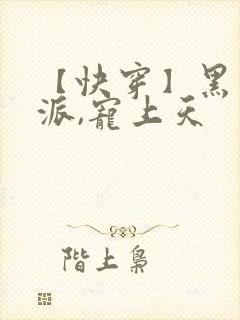 【快穿】黑
派,宠上天
階上枭